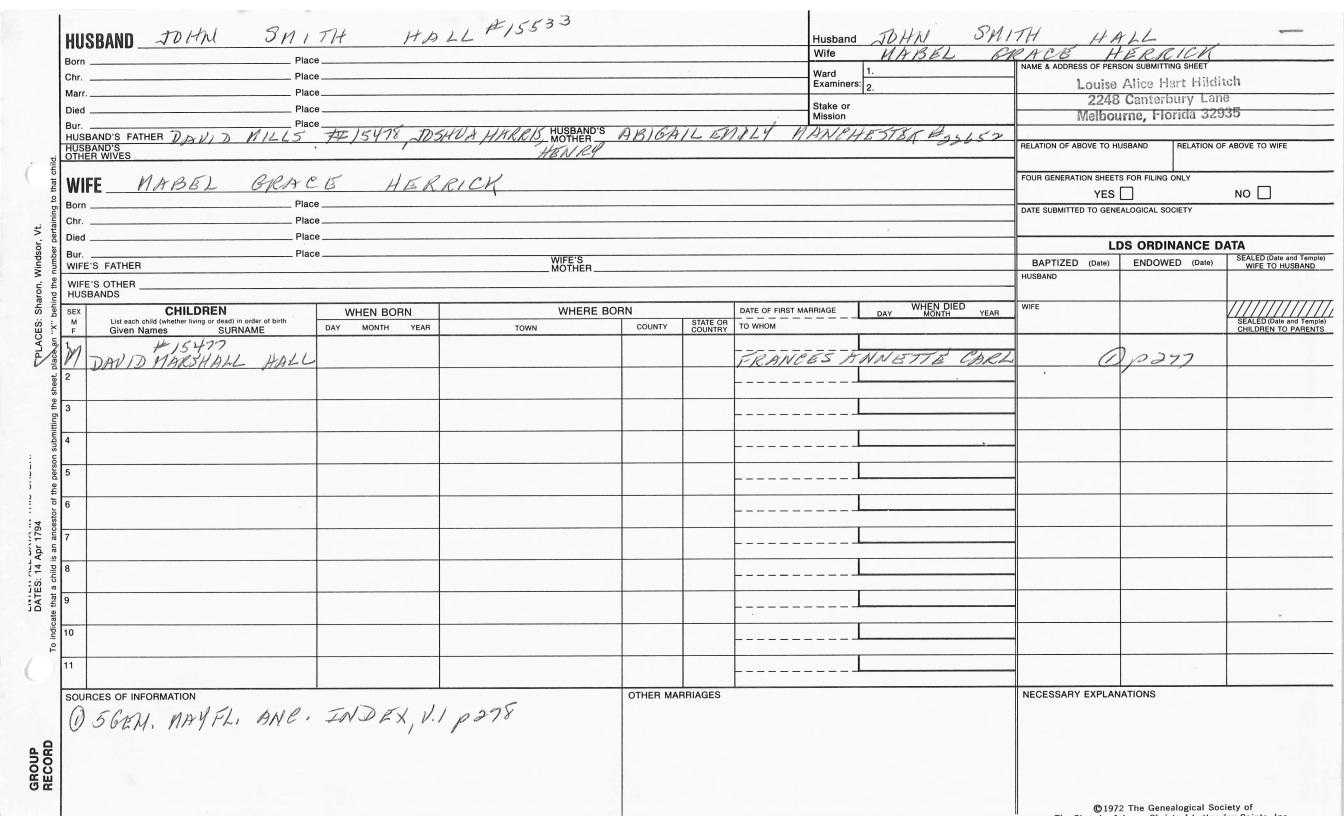 HUSBAND JOHN SMITH HALL #15533
Born Place
Chr. Place
Marr. Place
Died Place
Bur. Place
HUSBAND'S FATHER DAVID MILLS #15478, JOSHUA HARRIS, HENRY HUSBAND'S MOTHER ABIGAIL EMILY MANCHESTER #22652
HUSBAND'S OTHER WIVES
Husband JOHN SMITH HALL —
Wife MABEL GRACE HERRICK
Ward Examiners: 1.
2.
Stake or Mission
NAME & ADDRESS OF PERSON SUBMITTING SHEET
Louise Alice Hart Hilditch
2248 Canterbury Lane
Melbourne, Florida 32935
RELATION OF ABOVE TO HUSBAND RELATION OF ABOVE TO WIFE
FOUR GENERATION SHEETS FOR FILING ONLY
YES NO
DATE SUBMITTED TO GENEALOGICAL SOCIETY
WIFE MABEL GRACE HERRICK
Born Place
Chr. Place
Died Place
Bur. Place
WIFE'S FATHER WIFE'S MOTHER
WIFE'S OTHER HUSBANDS
LDS ORDINANCE DATA
BAPTIZED (Date) ENDOWED (Date) SEALED (Date and Temple) WIFE TO HUSBAND
HUSBAND
WIFE
SEALED (Date and Temple) CHILDREN TO PARENTS
SEX M F
CHILDREN
List each child (whether living or dead) in order of birth
Given Names SURNAME
WHEN BORN
DAY MONTH YEAR
WHERE BORN
TOWN COUNTY STATE OR COUNTRY
DATE OF FIRST MARRIAGE
TO WHOM
WHEN DIED
DAY MONTH YEAR
1 #15477
M DAVID MARSHALL HALL FRANCES ANNETTE CARL ① p277
2
3
4
5
6
7
8
9
10
11
SOURCES OF INFORMATION
① 5GEM. MAYFL. ANC. INDEX, V.1 p278
OTHER MARRIAGES
NECESSARY EXPLANATIONS
©1972 The Genealogical Society of
PLACES: Sharon, Windsor, Vt.
DATES: 14 Apr 1794
To indicate that a child is an ancestor of the person submitting the sheet, place an "X" behind the number pertaining to that child.
GROUP
RECORD